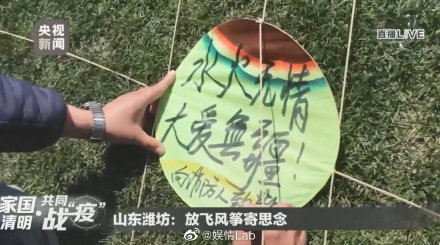 央视
新闻
直播LIVE
水火无情
大爱無疆！
家国共同
清明·战“疫”
山东潍坊：放飞风筝寄思念
@娱情Lab